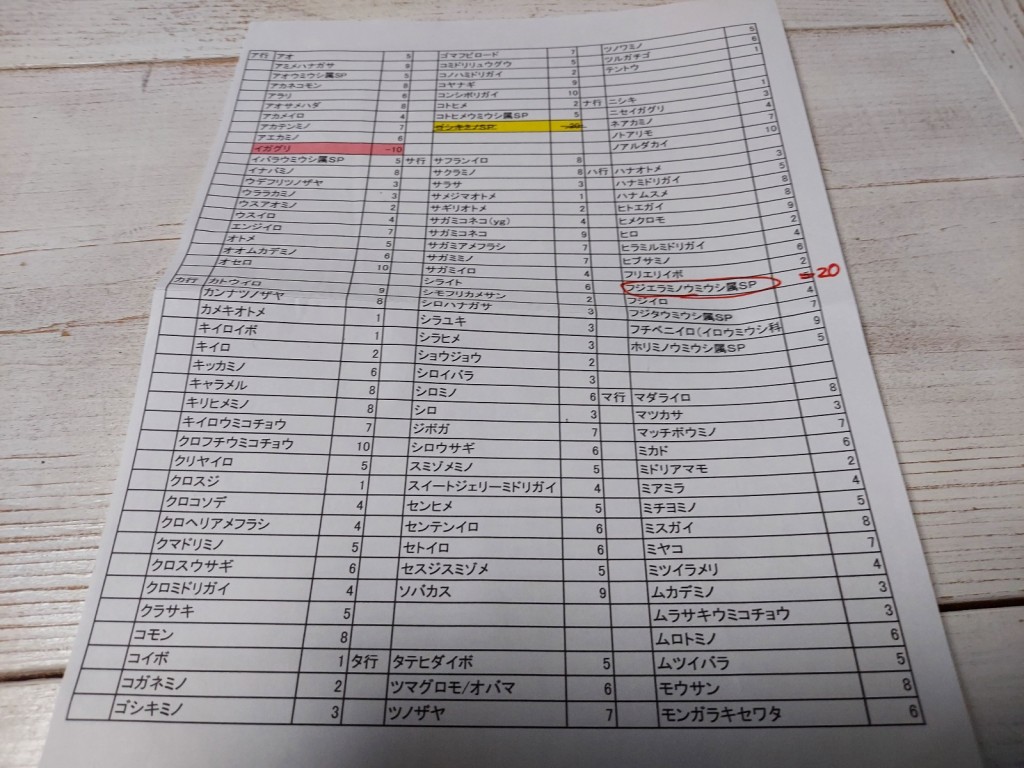 ア行 アオ 5
アミメハナガサ 8
アオウミウシ属SP 5
アカネコモン 8
アラリ
アオサメハダ 8
アカメイロ 4
アカテンミノ 7
アエカミノ 6
イガグリ -10
イバラウミウシ属SP 5
イナバミノ 8
ウデフリツノザヤ 3
ウララカミノ 3
ウスアオミノ 2
ウスイロ 4
エンジイロ 7
オトメ 5
オオムカデミノ 6
オセロ 10
カ行 カトウイロ 9
カンナツノザヤ 8
カメキオトメ 1
キイロイボ 1
キイロ 2
キッカミノ 6
キャラメル 8
キリヒメミノ 8
キイロウミコチョウ 7
クロフチウミコチョウ 10
クリヤイロ 5
クロスジ 1
クロコソデ 4
クロヘリアメフラシ 4
クマドリミノ 5
クロスウサギ 6
クロミドリガイ 4
クラサキ 5
コモン 8
コイボ 1
コガネミノ 2
ゴシキミノ 3
ゴマフビロード 7
コミドリリュウグウ 5
コノハミドリガイ 2
コヤナギ 9
コンシボリガイ 10
コトヒメ 2
コトヒメウミウシ属SP 5
ゴシキミノSP -20
サ行 サフランイロ 8
サクラミノ 8
サラサ 3
サメジマオトメ 1
サギリオトメ 2
サガミコネコ(yg) 4
サガミコネコ 9
サガミアメフラシ 7
サガミミノ 7
サガミイロ 4
シライト 6
シモフリカメサン 2
シロハナガサ 3
シラユキ 3
シラヒメ 3
ショウジョウ 2
シロイバラ 3
シロミノ 6
シロ 3
ジボガ 7
シロウサギ 6
スミゾメミノ 5
スイートジェリーミドリガイ 4
センヒメ 5
センテンイロ 6
セトイロ 6
セスジスミゾメ 5
ソバカス 9
タ行 タテヒダイボ 5
ツマグロモ/オバマ 6
ツノザヤ 7
ツノワミノ 5
ツルガチゴ 6
テントウ 1
ナ行 ニシキ 1
ニセイガグリ 3
ネアカミノ 4
ノトアリモ 7
ノアルダカイ 10
ハ行 ハナオトメ 3
ハナミドリガイ 5
ハナムスメ 4
ヒトエガイ 8
ヒメクロモ 9
ヒロ 2
ヒラミルミドリガイ 4
ヒブサミノ 6
フリエリイボ 2
フジエラミノウミウシ属SP -20
フジイロ 4
フジタウミウシ属SP 7
フチベニイロ(イロウミウシ科 9
ホリミノウミウシ属SP 5
マ行 マダライロ 8
マツカサ 3
マッチボウミノ 7
ミカド 6
ミドリアマモ 2
ミアミラ 4
ミチヨミノ 5
ミスガイ 8
ミヤコ 7
ミツイラメリ 4
ムカデミノ 3
ムラサキウミコチョウ 3
ムロトミノ 6
ムツイバラ 5
モウサン 8
モンガラキセワタ 6